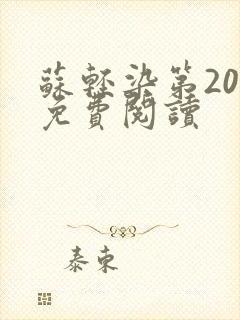 蘇輕染第20
免費閱讀
泰東